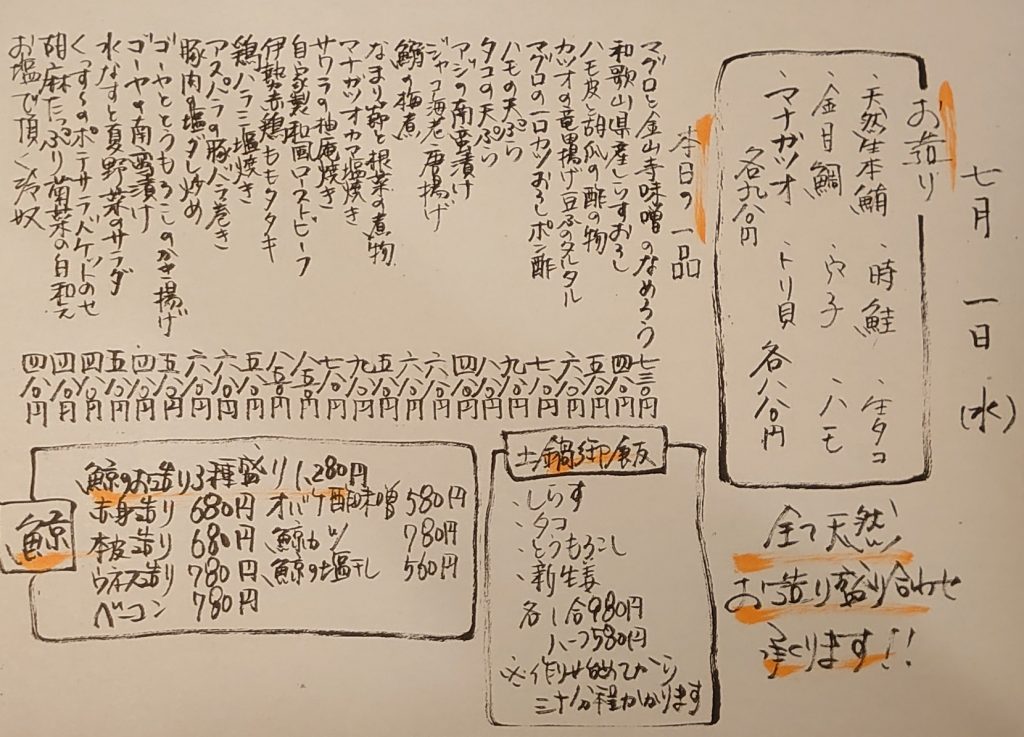 七月一日(水)
お造り
・天然生本鮪 ・時鮭 ・生タコ
・金目鯛 ・穴子 ・ハモ
・マナガツオ ・トリ貝
各九八〇円 各八八〇円
全て天然
お造り盛り合わせ
承ります!!
本日の一品
マグロと金山寺味噌のなめろう 七三〇円
和歌山県産しらすおろし 四八〇円
ハモ皮と胡瓜の酢の物 五八〇円
カツオの竜田揚げ豆ふのタルタル 六八〇円
マグロの一口カツおろしポン酢 七八〇円
ハモの天ぷら 九八〇円
タコの天ぷら 八八〇円
アジの南蛮漬け 四八〇円
ジャコ海老唐揚げ 六八〇円
鰯の梅煮 六八〇円
なまり節と根菜の煮物 五八〇円
マナガツオカマ塩焼き 九八〇円
サワラの柚庵焼き 七八〇円
自家製和風ローストビーフ 八五〇円
伊勢赤鶏ももタタキ 八五〇円
鶏ハラミ塩焼き 五八〇円
アスパラの豚バラ巻き 六八〇円
豚肉の塩ダレ炒め 六八〇円
ゴーヤととうもろこしのかき揚げ 五八〇円
ゴーヤの南蛮漬け 四八〇円
水なすと夏野菜のサラダ 五八〇円
ポテサラバケットのせ 四八〇円
胡麻たっぷり菊菜の白和え 四八〇円
お塩で頂く冷奴 四八〇円
土鍋御飯
・しらす
・タコ
・とうもろこし
・新生姜
各1合980円
ハーフ580円
※作り始めてから
三十分程かかります
鯨
鯨のお造り3種盛り 1,280円
赤身造り 680円 オバケ酢味噌 580円
本皮造り 680円 鯨カツ 780円
ウネス造り 780円 鯨の塩干し 560円
ベーコン 780円